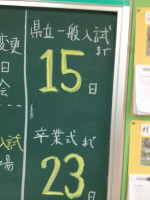 県立一般入試
まで
15日
卒業式まで
23日
変更
日
会
入試
場
村